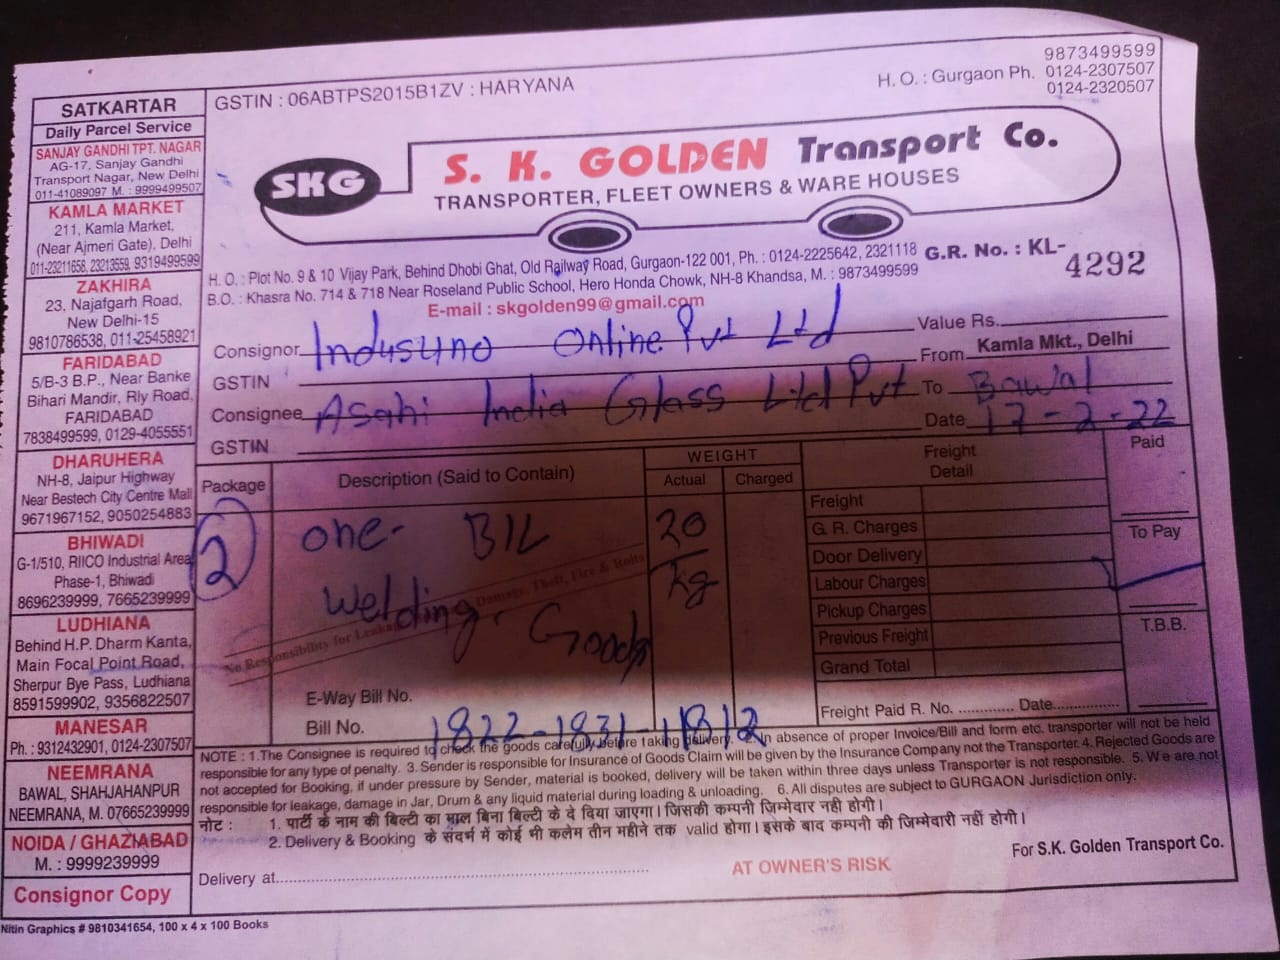 SATKARTAR
Daily Parcel Service
SANJAY GANDHI TPT. NAGAR
AG-17, Sanjay Gandhi
Transport Nagar, New Delhi
011-41089097 M. : 9999499507
KAMLA MARKET
211, Kamla Market,
(Near Ajmeri Gate), Delhi
011-23211658, 23213559, 9319499599
ZAKHIRA
23, Najafgarh Road,
New Delhi-15
9810786538, 011-25458921
FARIDABAD
5/B-3 B.P., Near Banke
Bihari Mandir, Rly Road,
FARIDABAD
7838499599, 0129-4055551
DHARUHERA
NH-8, Jaipur Highway
Near Bestech City Centre Mall
9671967152, 9050254883
BHIWADI
G-1/510, RIICO Industrial Area
Phase-1, Bhiwadi
8696239999, 7665239999
LUDHIANA
Behind H.P. Dharm Kanta,
Main Focal Point Road,
Sherpur Bye Pass, Ludhiana
8591599902, 9356822507
MANESAR
Ph. : 9312432901, 0124-2307507
NEEMRANA
BAWAL, SHAHJAHANPUR
NEEMRANA, M. 07665239999
NOIDA / GHAZIABAD
M. : 9999239999
Consignor Copy
GSTIN : 06ABTPS2015B1ZV : HARYANA
9873499599
H. O. : Gurgaon Ph. 0124-2307507
0124-2320507
SKG
S. K. GOLDEN Transport Co.
TRANSPORTER, FLEET OWNERS & WARE HOUSES
H. O. : Plot No. 9 & 10 Vijay Park, Behind Dhobi Ghat, Old Railway Road, Gurgaon-122 001, Ph. : 0124-2225642, 2321118
B.O. : Khasra No. 714 & 718 Near Roseland Public School, Hero Honda Chowk, NH-8 Khandsa, M. : 9873499599
E-mail : skgolden99@gmail.com
G.R. No. : KL- 4292
Consignor Indusuno Online Pvt Ltd
Value Rs.
GSTIN
From Kamla Mkt., Delhi
Consignee Asahi India Glass Ltd Pvt
To Bawal
GSTIN
Date 17-2-22
Package Description (Said to Contain) WEIGHT Actual Charged Freight Detail Paid
2 one- Bil 20 Kg
Welding Goods
No Responsibility for Leakage, Damage, Theft, Fire & Riots
Freight
G. R. Charges
Door Delivery
Labour Charges
Pickup Charges
Previous Freight
Grand Total
To Pay
T.B.B.
E-Way Bill No.
Bill No. 1822-1831-11812
Freight Paid R. No. ............. Date...............
NOTE : 1.The Consignee is required to check the goods carefully before taking delivery. 2. In absence of proper Invoice/Bill and form etc. transporter will not be held
responsible for any type of penalty. 3. Sender is responsible for Insurance of Goods Claim will be given by the Insurance Company not the Transporter. 4. Rejected Goods are
not accepted for Booking, if under pressure by Sender, material is booked, delivery will be taken within three days unless Transporter is not responsible. 5. We are not
responsible for leakage, damage in Jar, Drum & any liquid material during loading & unloading. 6. All disputes are subject to GURGAON Jurisdiction only.
नोट : 1. पार्टी के नाम की बिल्टी का माल बिना बिल्टी के दे दिया जाएगा। जिसकी कम्पनी जिम्मेदार नही होगी।
2. Delivery & Booking के संदर्भ में कोई भी कलेम तीन महीने तक valid होगा। इसके बाद कम्पनी की जिम्मेदारी नहीं होगी।
For S.K. Golden Transport Co.
Delivery at....................
AT OWNER'S RISK
Nitin Graphics # 9810341654, 100 x 4 x 100 Books